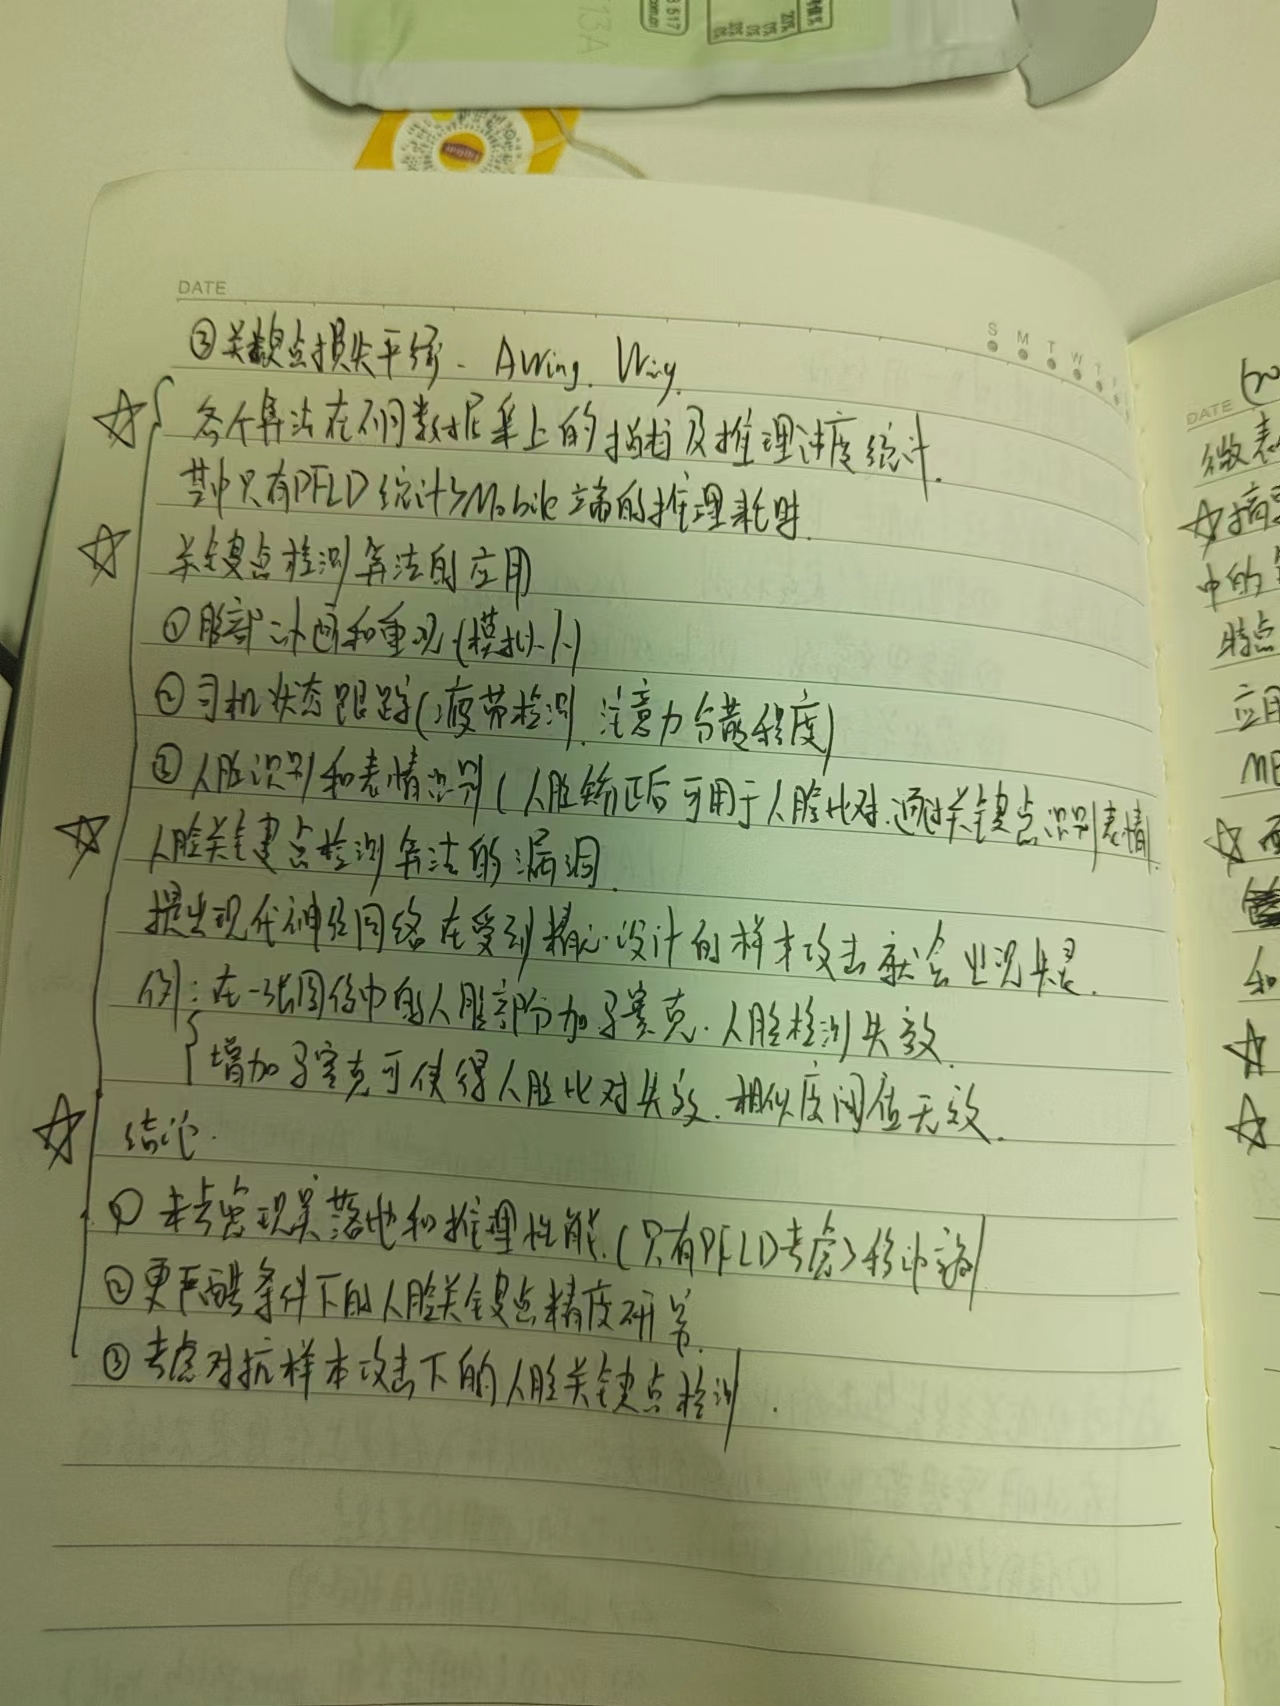 DATE
③关键点损失平衡. AWing. Wing.
☆ 各个算法在不同数据集上的指标及推理速度统计.
其中只有PFLD统计了Mobile端的推理耗时.
☆ 关键点检测算法的应用
①脸部动画和重现(模拟人)
②司机状态跟踪(疲劳检测.注意力分散程度)
③人脸识别和表情识别(人脸矫正后可用于人脸比对.通过关键点识别表情)
☆ 人脸关键点检测算法的漏洞.
提出现代神经网络在受到精心设计的样本攻击就会出现失灵.
例:在一张图像中的人脸部分加马赛克.人脸检测失效.
增加马赛克可使得人脸比对失效.相似度阈值无效.
☆ 结论.
① 未考虑现实落地和推理性能.(只有PFLD考虑了移动端)
②更严酷条件下的人脸关键点精度研究.
③考虑对抗样本攻击下的人脸关键点检测.
S M T W T
DATE
微表
☆摘要
中的
特点
应用
ME
☆
和
☆
☆